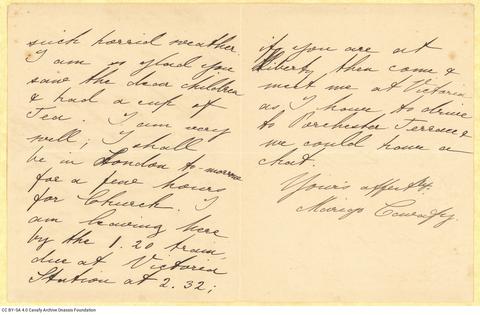 such horrid weather.
I am so glad you
saw the dear children
& had a cup of
Tea. I am very
well; I shall
be in London to-morrow
for a few hours
for Church. I
am leaving here
by the 1.20 train,
due at Victoria
Station at 2.32;
if you are at
liberty then come &
meet me at Victoria
as I have to drive
to Porchester Terrace &
we could have a
chat.
Yours affectly.
Marigo Cavafy.
CC BY-SA 4.0 Cavafy Archive Onassis Foundation